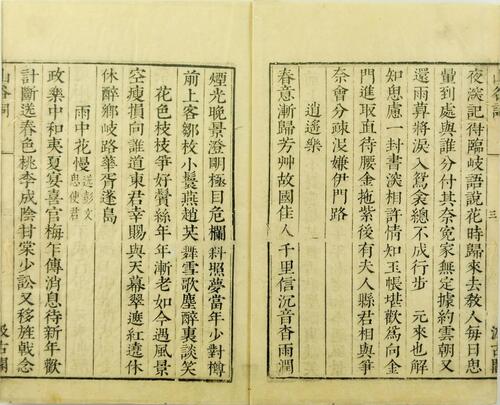 山谷詞
三
汲古閣
夜深記得臨岐語說花時歸來去教人每日思
量到處與誰分付其奈冤家無定據約雲朝又
還雨暮將淚入鴛衾總不成行步　元來也解
知思慮一封書深相許情知玉帳堪歡爲向金
門進取直待腰金拖紫後有夫人縣君相與爭
奈會分疎沒嫌伊門路
逍遙樂
春意漸歸芳艸故國佳人千里信沉音杳雨潤
煙光晚景澄明極目危欄斜照夢當年少對樽
前上客鄒枚小鬟燕趙共舞雪歌塵醉裏談笑
花色枝枝爭好鬢絲年年漸老如今遇風景
空瘦損向誰道東君幸賜與天幕翠遮紅遶休
休醉鄉岐路華胥蓬島
雨中花慢 送彭文思使君
政樂中和夷夏宴喜官梅乍傳消息待新年歡
計斷送春色桃李成陰甘棠少訟又移旌戟念
山谷詞
汲古閣